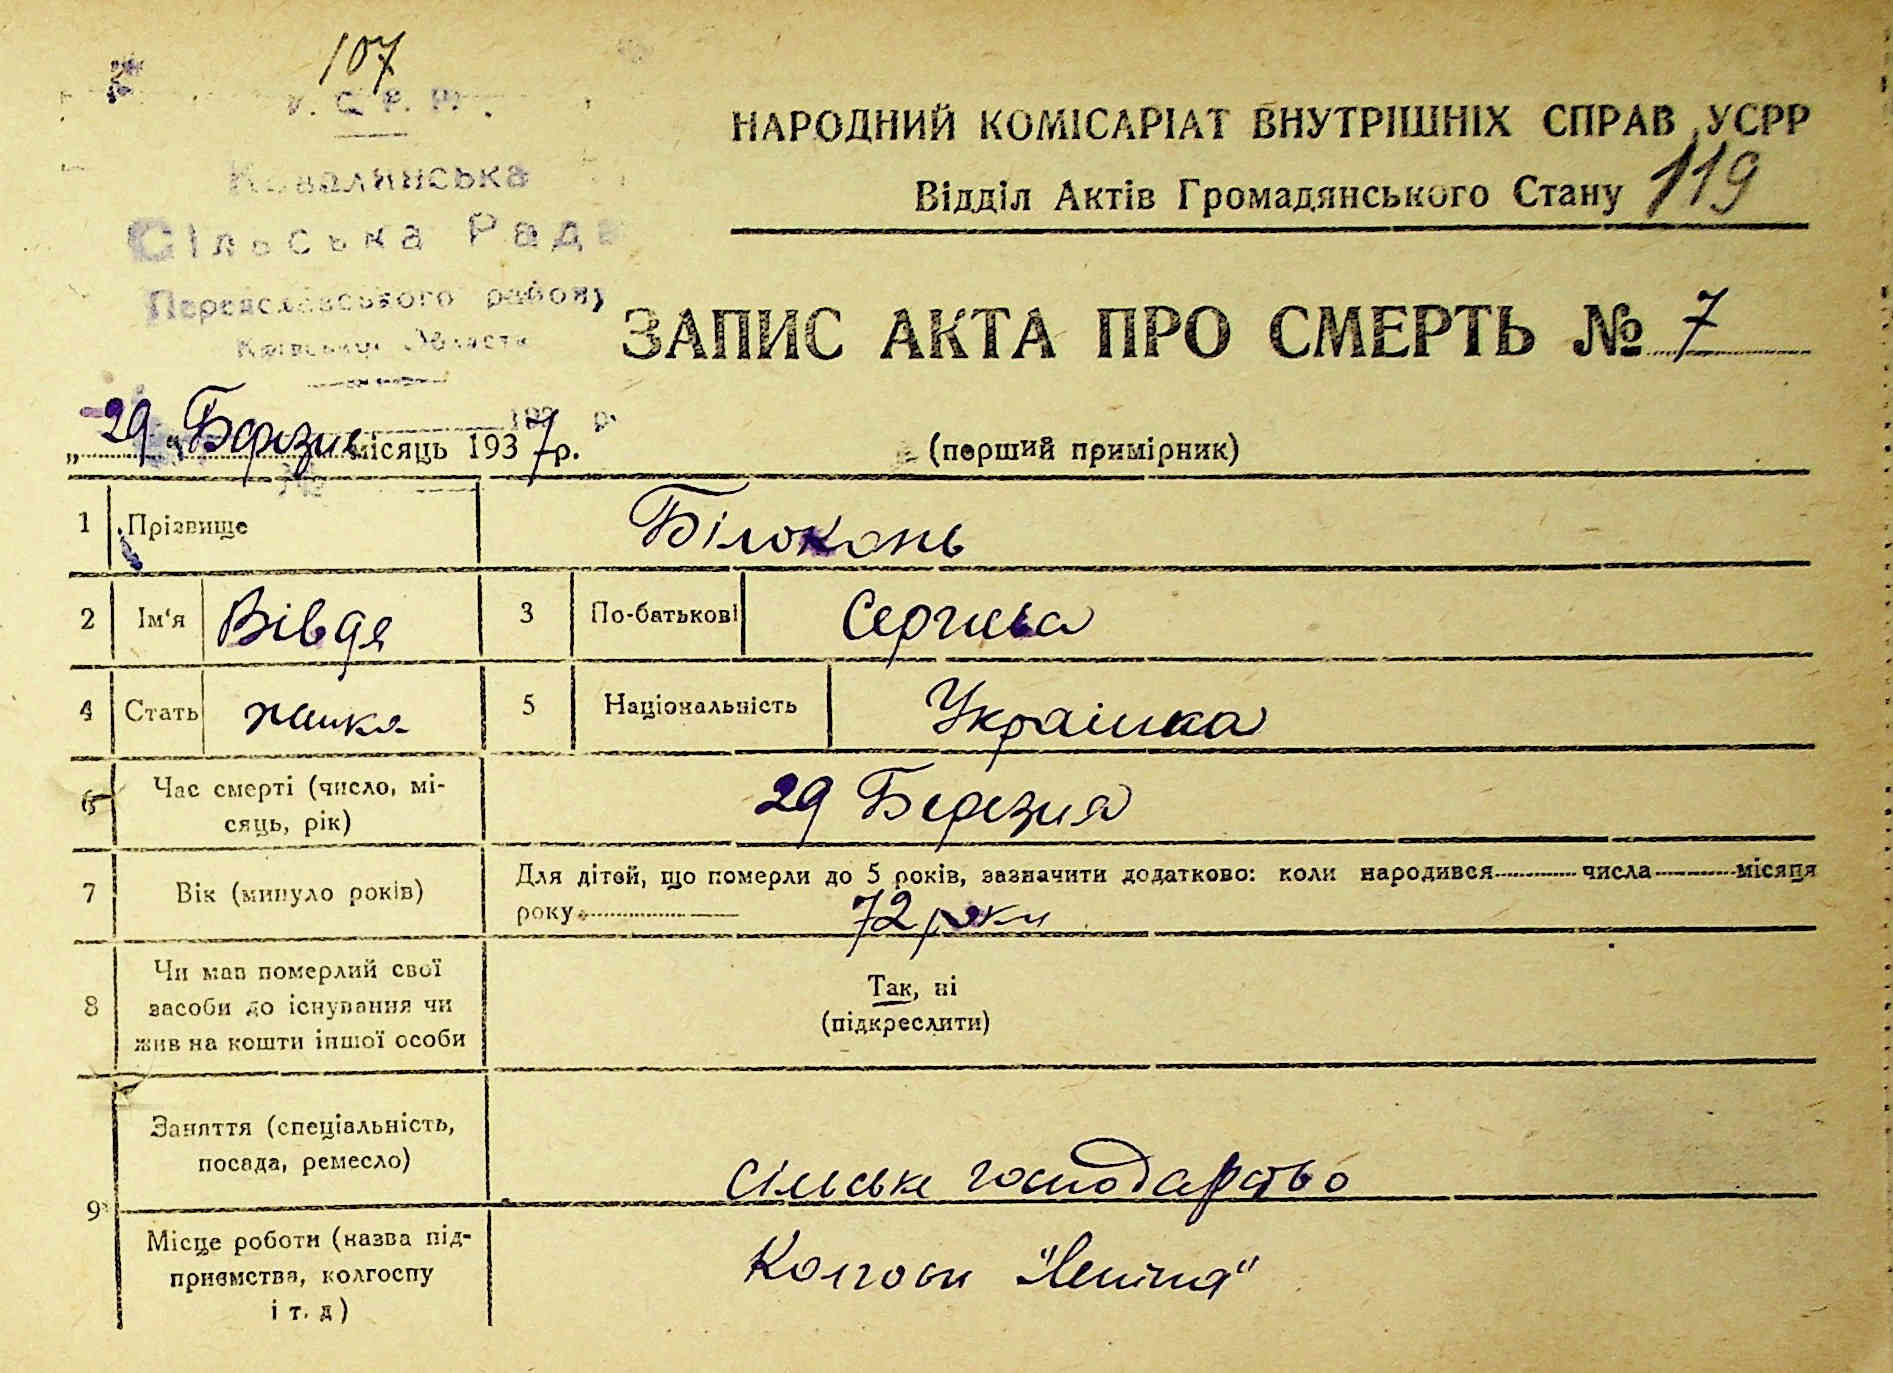 107
У. С. Р. Р.
Ковалинська
Сільська Рада
Переяславського району
Київської Області
НАРОДНИЙ КОМІСАРІАТ ВНУТРІШНІХ СПРАВ УСРР
Відділ Актів Громадянського Стану 119
ЗАПИС АКТА ПРО СМЕРТЬ № 7
„29" Березня місяць 1937 р.
(перший примірник)
1 Прізвище Білоконь
2 Ім'я Вівдя 3 По-батькові Сергієва
4 Стать жінка 5 Національність Українка
6 Час смерті (число, мі-
сяць, рік) 29 Березня
7 Вік (минуло років) Для дітей, що померли до 5 років, зазначити додатково: коли народився числа місяця
року 72 роки
8 Чи мав померлий свої
засоби до існування чи
жив на кошти іншої особи
Так, ні
(підкреслити)
9 Заняття (спеціальність,
посада, ремесло) сільське господарство
Місце роботи (назва під-
приємства, колгоспу
і т. д) Колгосп "Леніна"